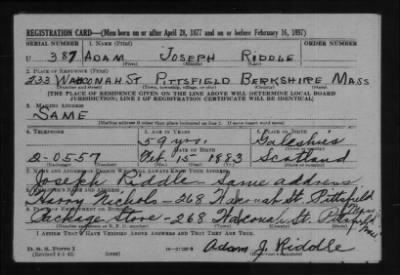 REGISTRATION CARD—(Men born on or after April 28, 1877 and on or before February 16, 1897)
SERIAL NUMBER 1. NAME (Print) ORDER NUMBER
U 387 ADAM JOSEPH RIDDLE
2. PLACE OF RESIDENCE (Print)
233 WAHCONAH ST PITTSFIELD BERKSHIRE MASS
(Number and street) (Town, township, village, or city) (County) (State)
[THE PLACE OF RESIDENCE GIVEN ON THE LINE ABOVE WILL DETERMINE LOCAL BOARD
JURISDICTION; LINE 2 OF REGISTRATION CERTIFICATE WILL BE IDENTICAL]
3. MAILING ADDRESS
SAME
[Mailing address if other than place indicated on line 2. If same insert word same]
4. TELEPHONE 5. AGE IN YEARS 6. PLACE OF BIRTH
59 yrs. Galashiels
DATE OF BIRTH
2-0557 Oct. 15 1883 Scotland
7. NAME AND ADDRESS OF PERSON WHO WILL ALWAYS KNOW YOUR ADDRESS
Joseph Riddle - Same address
8. EMPLOYER'S NAME AND ADDRESS
Harry Nichols - 268 Wahconah St. Pittsfield
9. PLACE OF EMPLOYMENT OR BUSINESS
Package Store - 268 Wahconah St. Pittsfield Mass
I AFFIRM THAT I HAVE VERIFIED ABOVE ANSWERS AND THAT THEY ARE TRUE.
D. S. S. Form 1
(Revised 4-1-42)
Adam J. Riddle